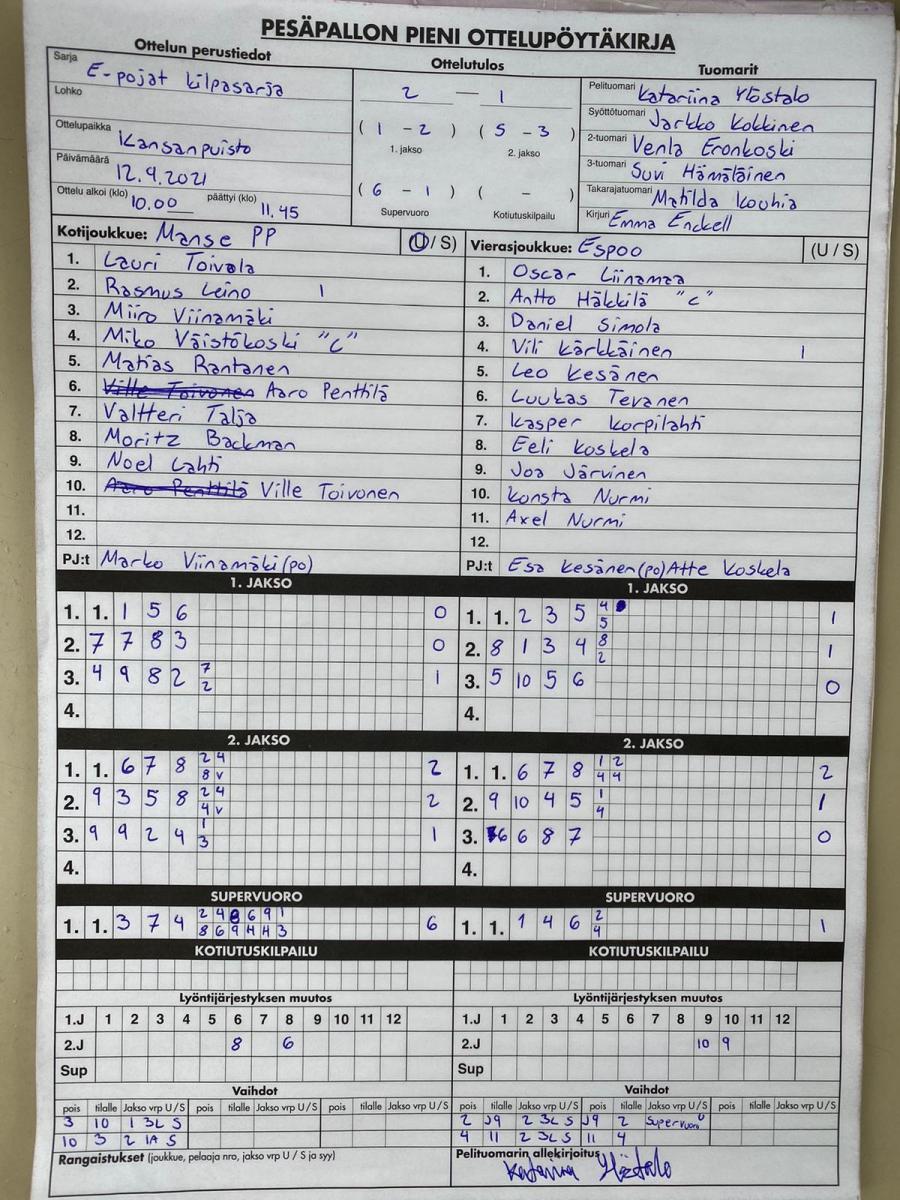 PESÄPALLON PIENI OTTELUPÖYTÄKIRJA
Ottelun perustiedot
Sarja E-pojat kilpasarja
Lohko
Ottelupaikka Kansanpuisto
Päivämäärä 12.9.2021
Ottelu alkoi (klo) 10.00 päättyi (klo) 11.45
Ottelutulos
2 — 1
( 1 - 2 ) ( 5 - 3 )
1. jakso 2. jakso
( 6 - 1 ) ( - )
Supervuoro Kotiutuskilpailu
Tuomarit
Pelituomari Katariina Ylöstalo
Syöttötuomari Jarkko Kokkinen
2-tuomari Venla Eronkoski
3-tuomari Suvi Hämäläinen
Takarajatuomari Matilda Kouhia
Kirjuri Emma Enckell
Kotijoukkue: Manse PP (U / S)
1. Lauri Toivola
2. Rasmus Leino 1
3. Miiro Viinamäki
4. Miko Väistökoski "C"
5. Matias Rantanen
6. Ville Toivonen Aaro Penttilä
7. Valtteri Talja
8. Moritz Backman
9. Noel Lahti
10. Aaro Penttilä Ville Toivonen
11.
12.
PJ:t Marko Viinamäki (po)
Vierasjoukkue: Espoo (U / S)
1. Oscar Liinamaa
2. Antto Häkkilä "C"
3. Daniel Simola
4. Vili Kärkkäinen 1
5. Leo Kesänen
6. Luukas Tevanen
7. Kasper Korpilahti
8. Eeli Koskela
9. Joa Järvinen
10. Konsta Nurmi
11. Axel Nurmi
12.
PJ:t Esa Kesänen (po) Atte Koskela
1. JAKSO
1. 1. 1 5 6 0
2. 7 7 8 3 0
3. 4 9 8 2 7 1
2
4.
2. JAKSO
1. 1. 6 7 8 2 4 2
8 v
2. 9 3 5 8 2 4 2
4 v
3. 9 9 2 4 1 1
3
4.
SUPERVUORO
1. 1. 3 7 4 2 4 8 6 9 1 6
8 6 9 4 4 3
KOTIUTUSKILPAILU
Lyöntijärjestyksen muutos
1.J 1 2 3 4 5 6 7 8 9 10 11 12
2.J 8 6
Sup
Vaihdot
pois tilalle Jakso vrp U / S pois tilalle Jakso vrp U / S pois tilalle Jakso vrp U / S
3 10 1 3L S
10 3 2 1A S
Rangaistukset (joukkue, pelaaja nro, jakso vrp U / S ja syy)
1. JAKSO
1. 1. 2 3 5 4 1
5
2. 8 1 3 4 8 1
2
3. 5 10 5 6 0
4.
2. JAKSO
1. 1. 6 7 8 1 2 2
4 4
2. 9 10 4 5 1 1
4
3. 6 6 8 7 0
4.
SUPERVUORO
1. 1. 1 4 6 2 1
4
KOTIUTUSKILPAILU
Lyöntijärjestyksen muutos
1.J 1 2 3 4 5 6 7 8 9 10 11 12
2.J 10 9
Sup
Vaihdot
pois tilalle Jakso vrp U / S pois tilalle Jakso vrp U / S pois tilalle Jakso vrp U / S
2 J9 2 3L S J9 2 Supervuoro U
4 11 2 3L S 11 4
Pelituomarin allekirjoitus
Katariina Ylöstalo